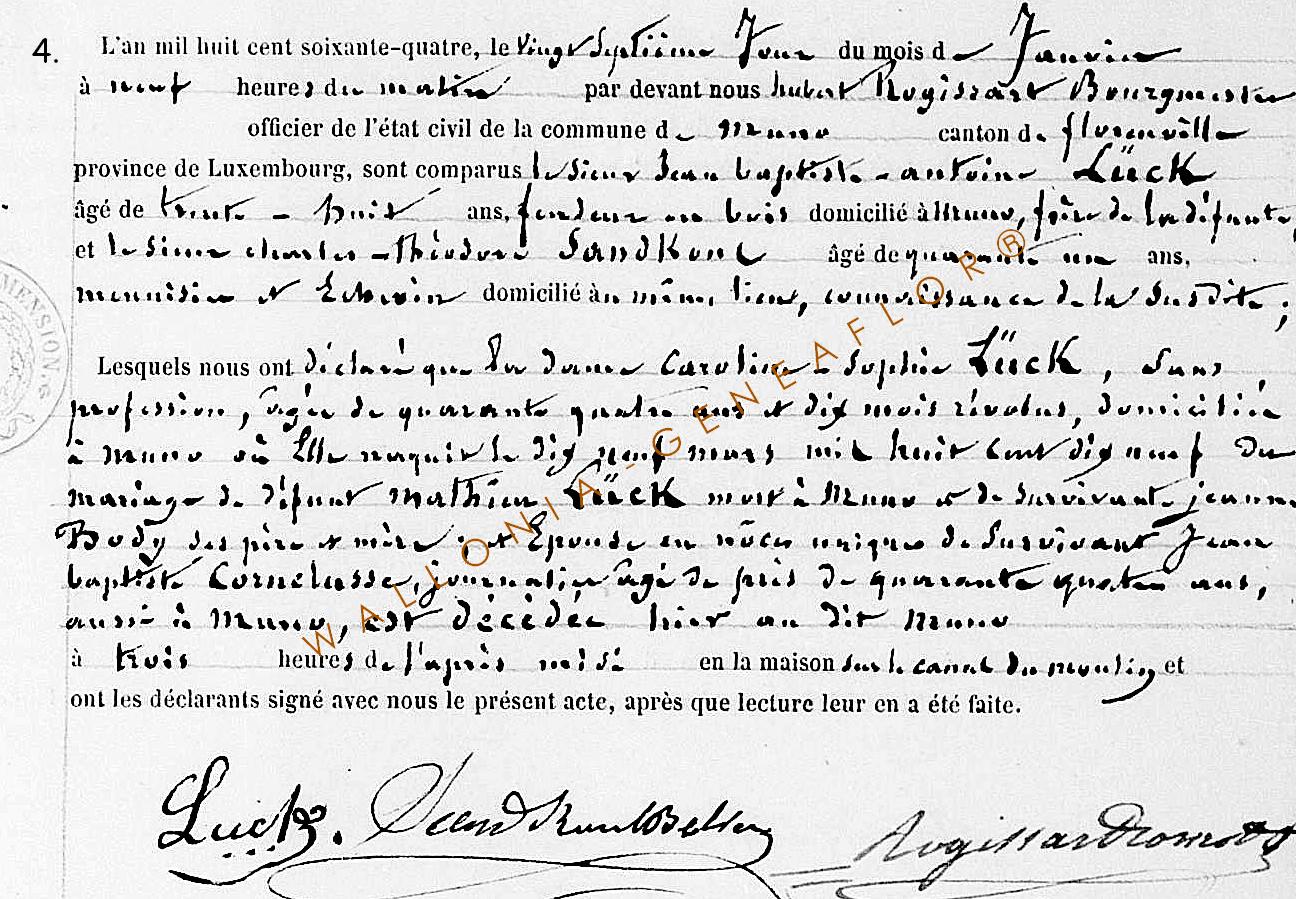 4. L'an mil huit cent soixante-quatre, le vingt septième Jour du mois de Janvier
à neuf heures du matin par devant nous hubert Rogissart Bourgmestre
officier de l'état civil de la commune de muno canton de florenville
province de Luxembourg, sont comparus le sieur Jean baptiste - antoine Lück
âgé de trente - huit ans, fendeur en bois domicilié à Muno, frère de la défunte,
et le Sieur charles - théodore Sandkoul âgé de quarante un ans,
menuisier et Echevin domicilié au même lieu, connaissance de la Susdite ;
Lesquels nous ont déclaré que la dame Caroline - Sophie Lück, sans
profession, âgée de quarante quatre ans et dix mois révolus, domiciliée
à muno où Elle naquit le dix neuf mars mil huit cent dix neuf du
mariage de défunt mathieu Lück mort à Muno et de Survivante jeanne
Body ses père et mère ; et Epouse en nôces uniques de Survivant Jean
baptiste Cornelusse, journalier âgé de près de quarante quatre ans,
aussi à Muno, est décédée hier au dit Muno
à trois heures de l'après midi en la maison sur le canal du moulin, et
ont les déclarants signé avec nous le présent acte, après que lecture leur en a été faite.
Luck.
WALLONIA - GENEAFLOR ®